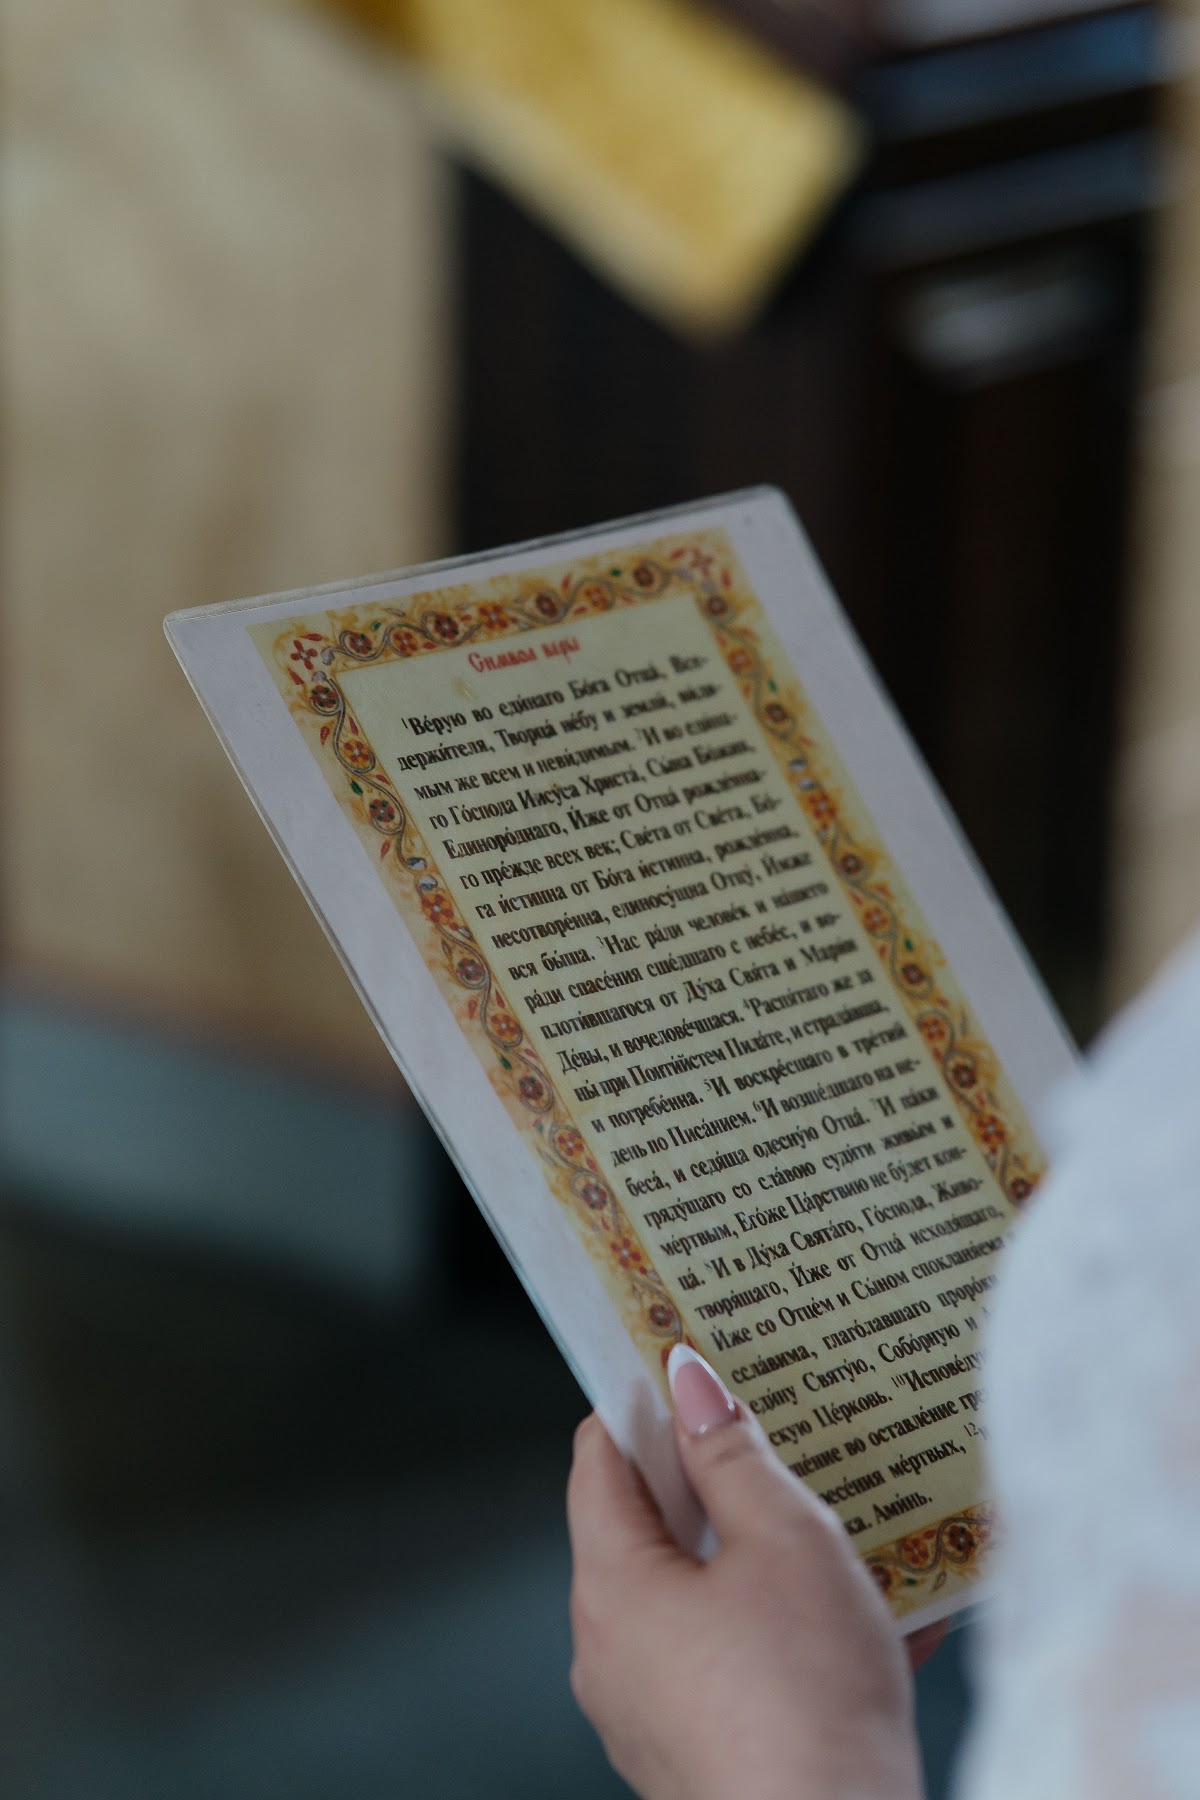 Символ веры
¹Ве́рую во еди́наго Бо́га Отца́, Все-
держи́теля, Творца́ не́бу и земли́, ви́ди-
мым же всем и неви́димым. ²И во еди́на-
го Го́спода Иису́са Христа́, Сы́на Бо́жия,
Единоро́днаго, И́же от Отца́ рожде́нна-
го пре́жде всех век; Све́та от Све́та, Бо́-
га и́стинна от Бо́га и́стинна, рожде́нна,
несотворе́нна, единосу́щна Отцу́, И́мже
вся бы́ша. ³Нас ра́ди челове́к и на́шего
ра́ди спасе́ния сше́дшаго с небе́с, и во-
плоти́вшагося от Ду́ха Свя́та и Мари́и
Де́вы, и вочелове́чшася. ⁴Распя́таго же за
ны́ при Понти́йстем Пила́те, и страда́вша,
и погребе́нна. ⁵И воскре́сшаго в тре́тий
день по Писа́нием. ⁶И возше́дшаго на не-
беса́, и седя́ща одесну́ю Отца́. ⁷И па́ки
гряду́щаго со сла́вою суди́ти живы́м и
ме́ртвым, Его́же Ца́рствию не бу́дет кон-
ца́. ⁸И в Ду́ха Свята́го, Го́спода, Живо-
творя́щаго, И́же от Отца́ исходя́щаго,
И́же со Отце́м и Сы́ном спокланя́ема
ссла́вима, глаго́лавшаго проро́ки
еди́ну Святу́ю, Собо́рную и
скую Це́рковь. ¹⁰Испове́ду
ще́ние во оставле́ние гре
ресе́ния ме́ртвых, ¹²
ка. Ами́нь.